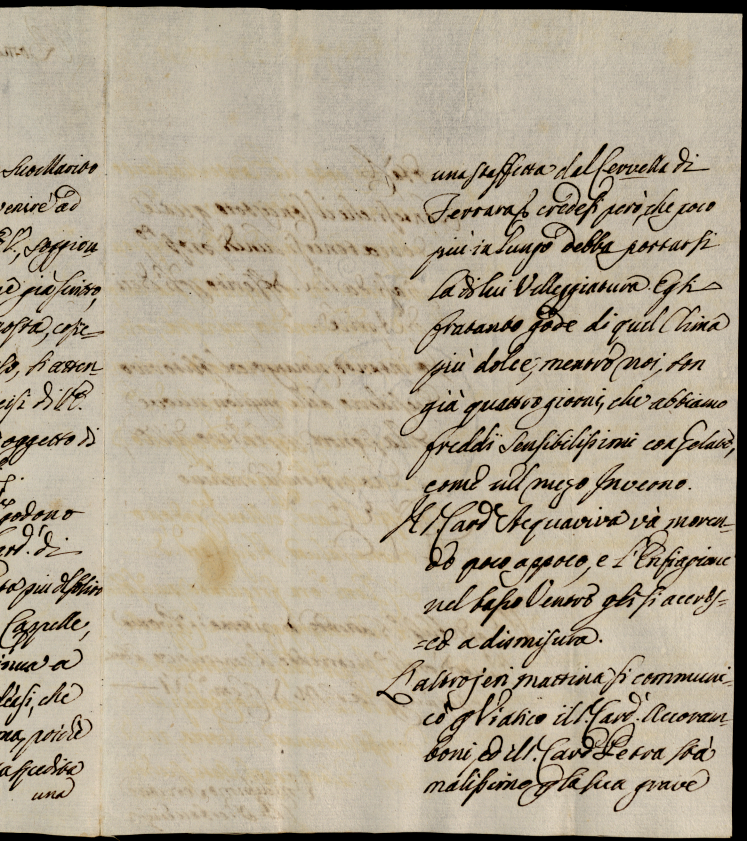 Suo Marito
venire ad
soggion
già scritto,
posta, copie
so, si atten-
cisi di V.E.
oggetto di
godono
Card. di
ta più del solito
Cappelle,
tinua a
dèsi, che
ma, poiche
spedita
una
una staffetta dal Cervella di
Ferrara, credesi però, che poco
più in lungo debba portarsi
la di lui Villeggiatura. Egli
fratanto gode di quel Clima
più dolce, mentre noi, son
già quattro giorni, che abbiamo
freddi sensibilissimi con gelate,
come nel mezo Inverno.
Il S. Card. Acquaviva và moren-
do poco appoco, e l'Enfiagione
nel basso Ventre gli si accres-
=ce a dismisura.
L'altro jeri mattina si communi-
cò p Viatico il S. Card. Accoram-
boni, ed il S. Card. Petra stà
malissimo p la sua grave